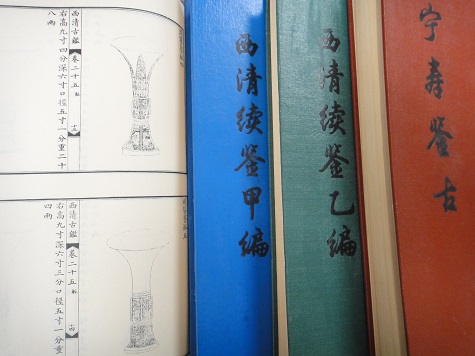 西清古鑑
卷二十五
十三
右高九寸四分深六寸口徑五寸一分重二十
八兩
西清古鑑
卷二十五
十四
右高九寸深六寸三分口徑五寸一
四兩
西清续鉴甲编
西清续鉴乙编
宁寿鉴古